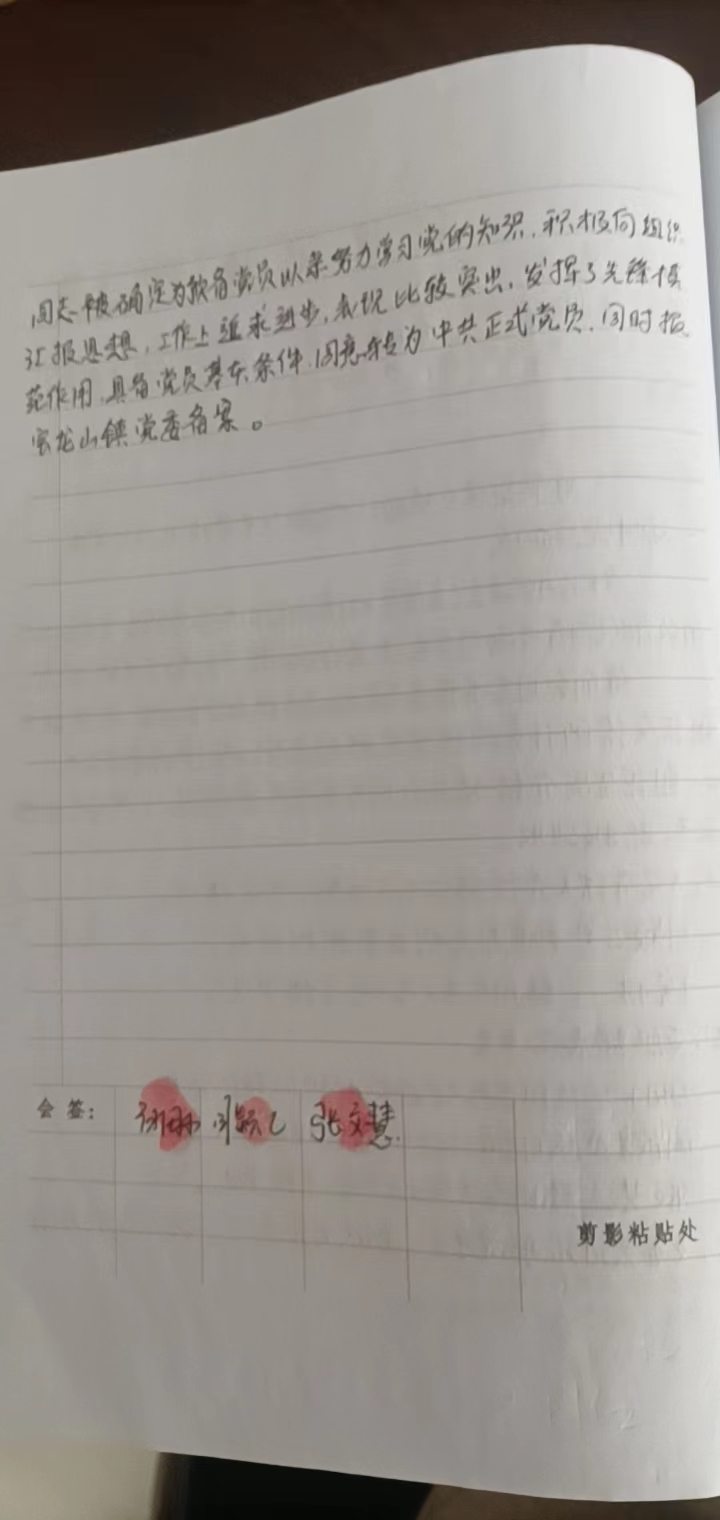 同志被确定为预备党员以来努力学习党的知识,积极向组织
汇报思想,工作上追求进步,表现比较突出,发挥了先锋模
范作用,具备党员基本条件,同意转为中共正式党员,同时报
宝龙山镇党委备案。
会签: 张文慧
剪影粘贴处